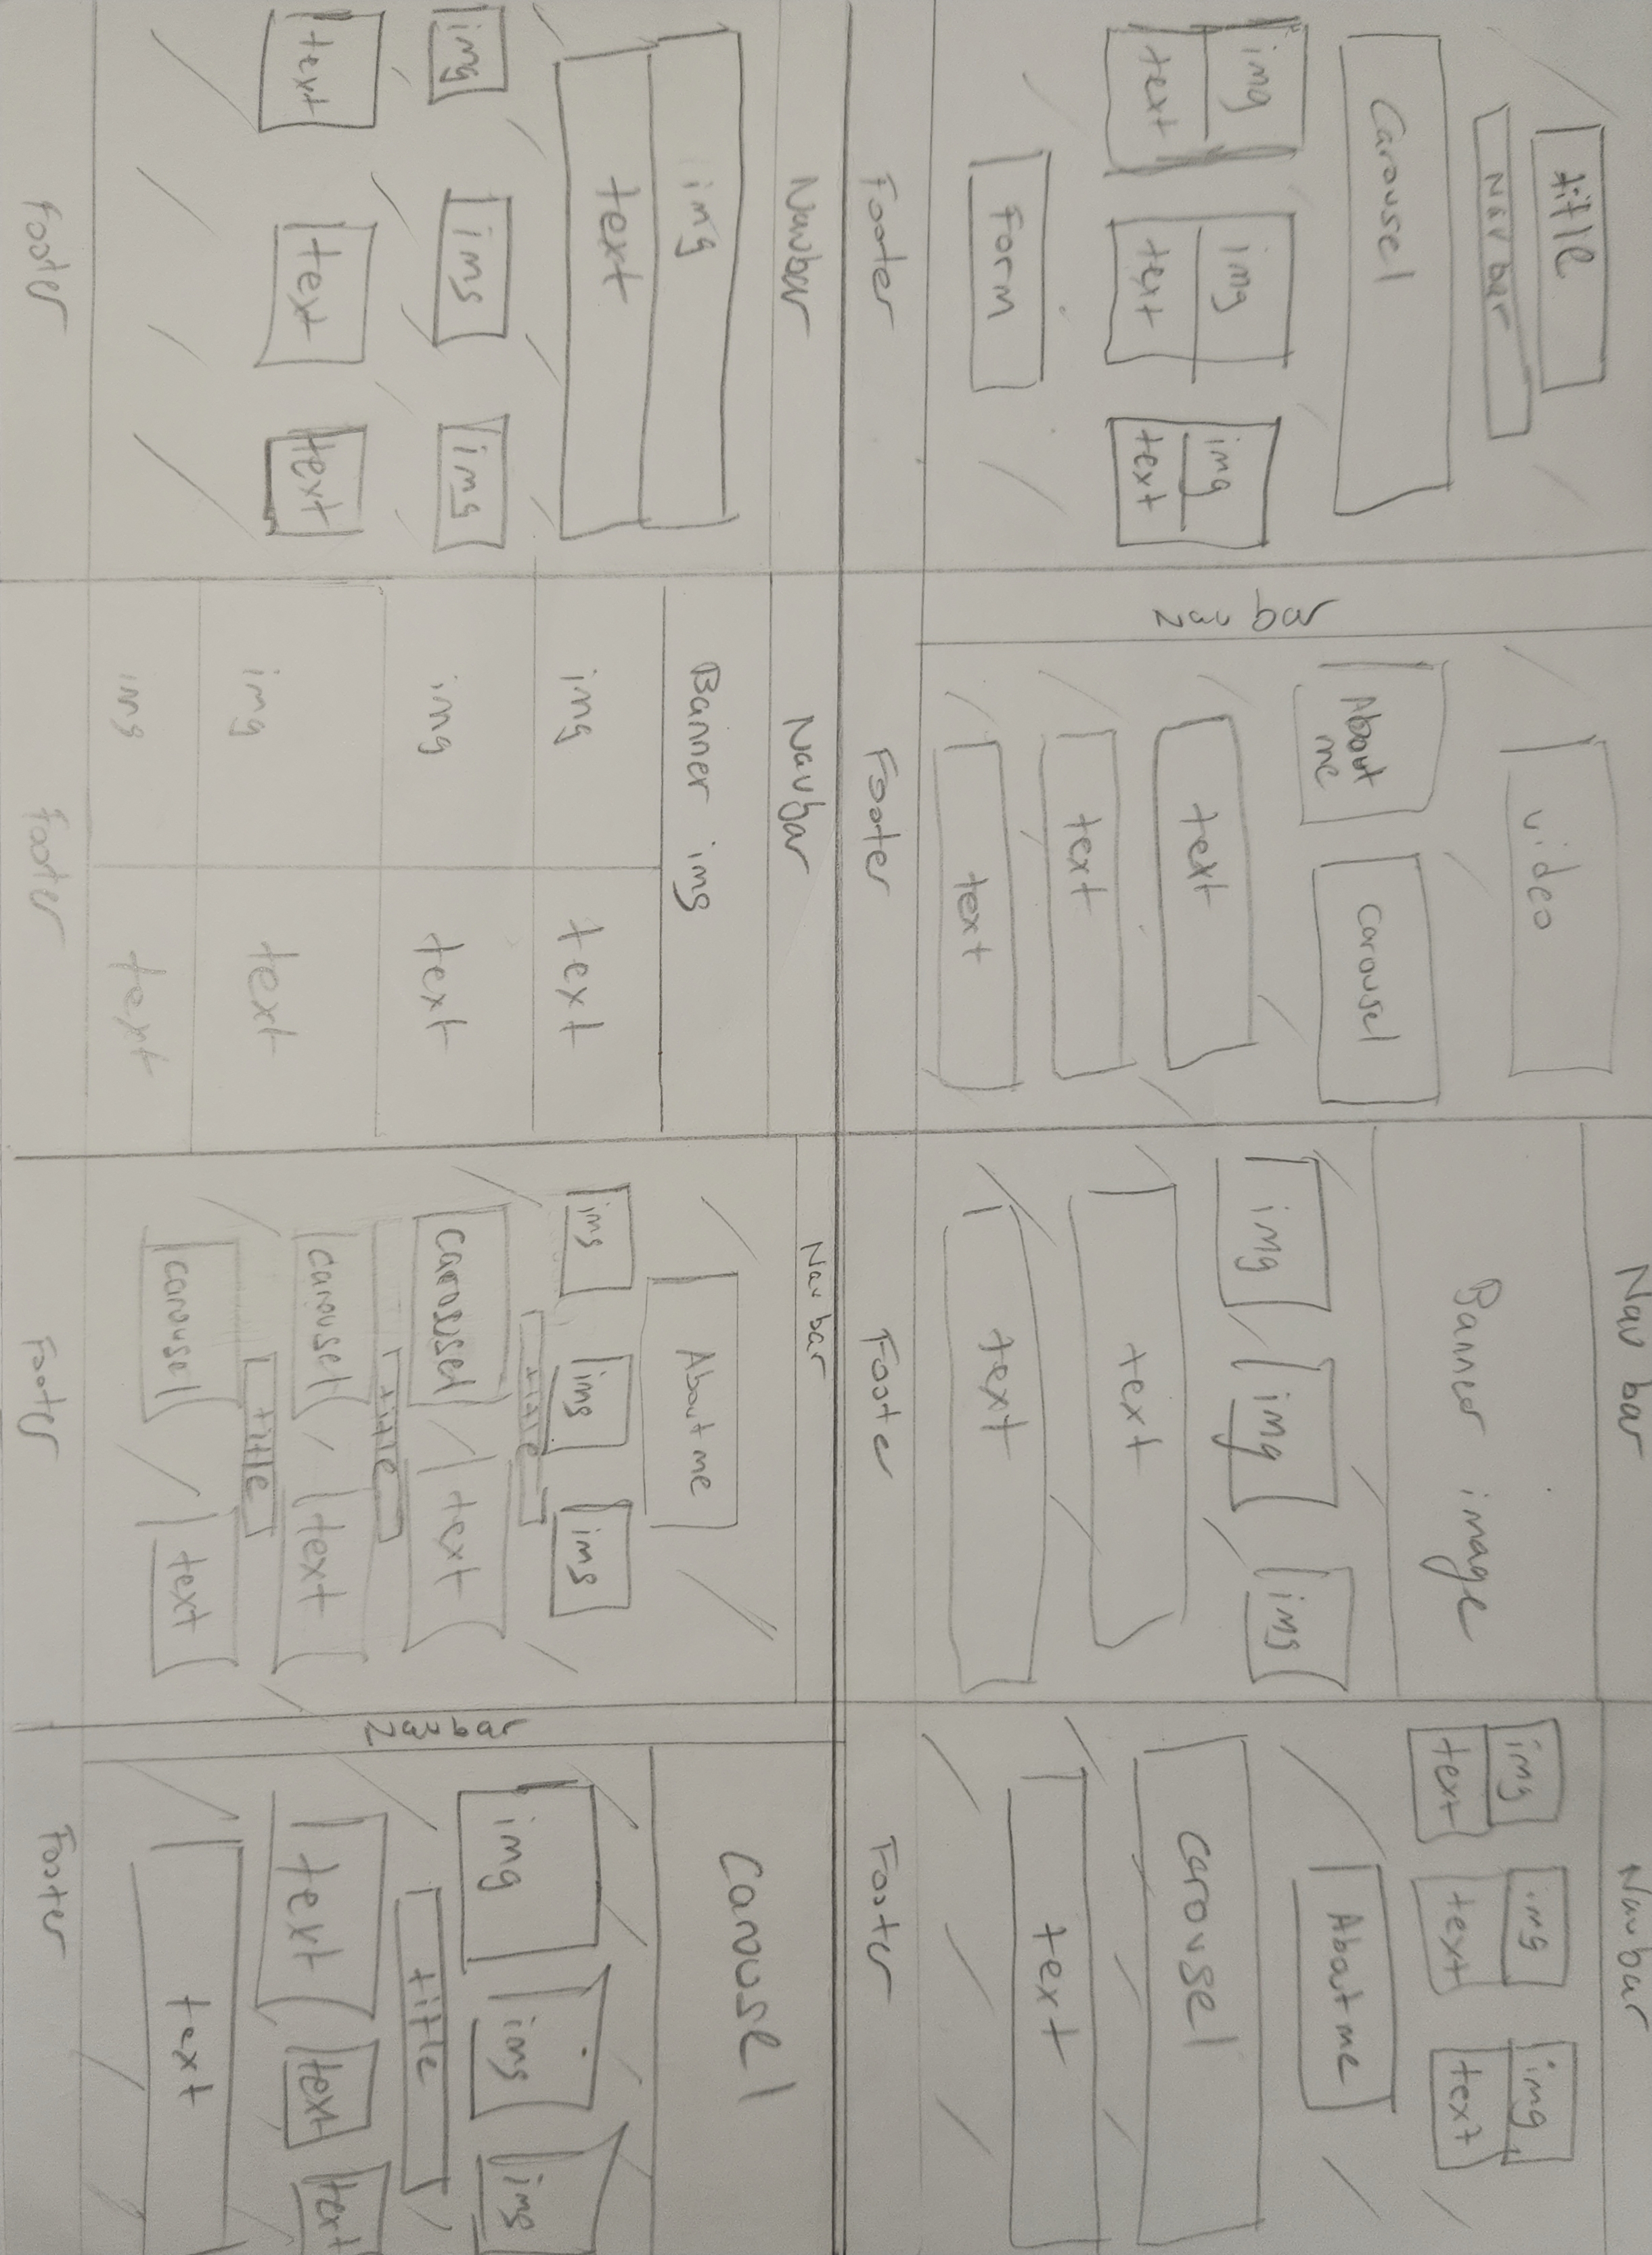 title
Nav bar
Carousel
img img img
text text text
Form
Footer
Nav bar
video
About
me
carousel
text
text
text
Footer
Nav bar
Banner image
img img img
text
text
Foote
Navbar
img img img
text text text
About me
carousel
text
Footer
Navbar
img
text
img img img
text text text
Footer
Navbar
Banner img
img text
img text
img text
img text
Footer
Nav bar
About me
img img img
title
carousel text
title
carousel text
title
carousel text
Footer
Navbar
Carousel
img img img
title
text text text
text
Footer